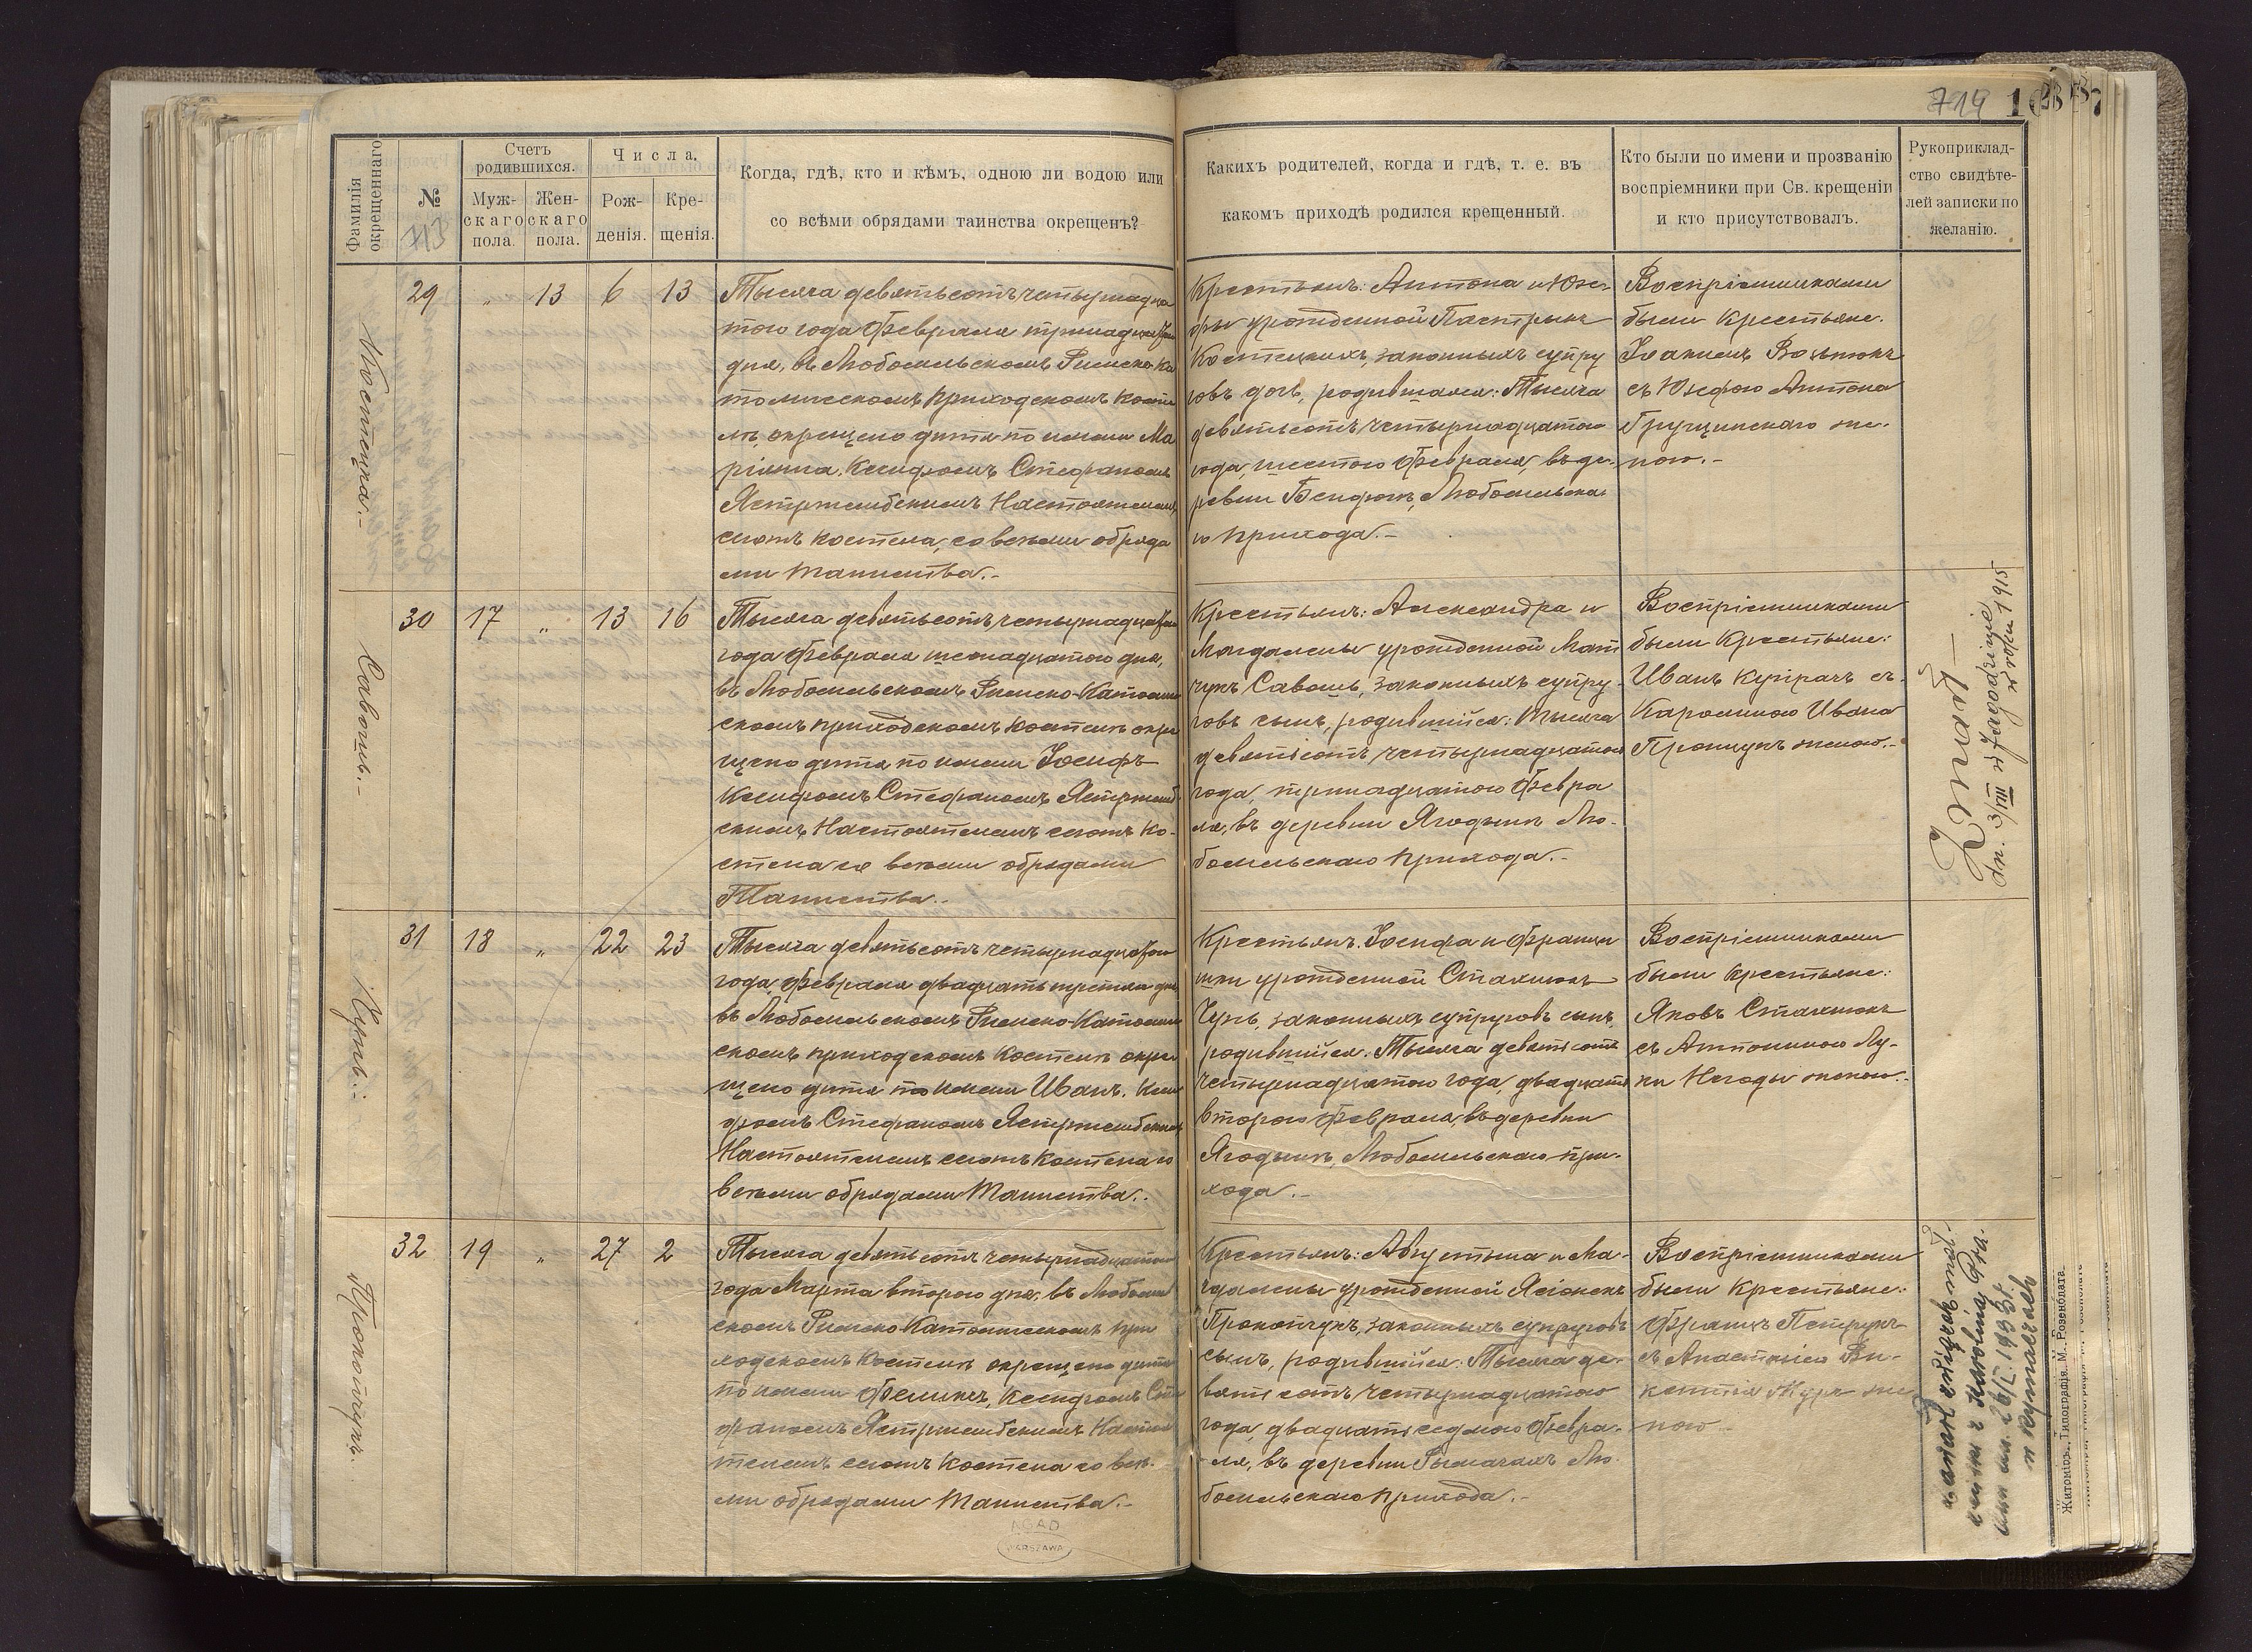 719
Фамилія окрещеннаго
№
713
Счетъ родившихся.
Мужскаго пола.
Женскаго пола.
Числа.
Рожденія.
Крещенія.
Когда, гдѣ, кто и кѣмъ, одною ли водою или
со всѣми обрядами таинства окрещенъ?
Какихъ родителей, когда и гдѣ, т. е. въ
какомъ приходѣ родился крещенный.
Кто были по имени и прозванію
воспріемники при Св. крещеніи
и кто присутствовалъ.
Рукоприклад-
ство свидѣте-
лей записки по
желанію.
Костецка.-
29 " 13 6 13
Тысяча девятьсотъ четырнадца
таго года Февраля тринадцатаго
дня, въ Любомльскомъ Римско-Ка
толическомъ приходскомъ косте
лѣ, окрещено дитя по имени Ма
ріанна. Ксендзомъ Стефаномъ
Ястржембскимъ Настоятелемъ
сегожъ костела, со всѣми обряда
ми Таинства.-
Крестьянъ: Антона и Юзе-
фы урожденной Пастрыкъ
Костецкихъ, законныхъ супру
говъ дочь, родившаяся: Тысяча
девятьсотъ четырнадцатаго
года, шестого Февраля, въ де-
ревни Бендюгѣ, Любомльска-
го прихода.-
Воспріемниками
были крестьяне.
Іоакимъ Возьнюкъ
съ Юзефою Антона
Грущинскаго же-
ною.-
Савошъ.-
30 17 " 13 16
Тысяча девятьсотъ четырнадцатаго
года Февраля шестнадцатого дня,
въ Любомльскомъ Римско-Католиче
скомъ приходскомъ костелѣ окре
щено дитя, по имени Іосифъ
Ксендзомъ Стефаномъ Ястржемб
скимъ, Настоятелемъ сегожъ ко-
стела со всѣми обрядами
Таинства.-
Крестьянъ: Александра и
Магдалены урожденной Мат
чукъ Савошъ, законныхъ супру-
говъ сынъ, родившійся: Тысяча
девятьсотъ четырнадцатого
года, тринадцатого Февра
ля, въ деревни Ягодынѣ Лю-
бомльскаго прихода.-
Воспріемниками
были крестьяне:
Иванъ Купрачъ съ
Каролиною Ивана
женою.-
Zmarł —
dn. 3/VIII w Jagodzinie
w roku 1915
Чупь.-
31 18 " 22 23
Тысяча девятьсотъ четырнадцатаго
года, Февраля двадцать третьяго дня
въ Любомльскомъ Римско-Католиче
скомъ приходскомъ костелѣ окре
щено дитя по имени Иванъ. Ксен
дзомъ Стефаномъ Ястржембскимъ
Настоятелемъ сегожъ костела со
всѣми обрядами Таинства.-
Крестьянъ. Іосифа и Франци
шки урожденной Стахнюкъ
Чупь, законныхъ супруговъ сынъ,
родившійся: Тысяча девятьсотъ
четырнадцатого года, двадцать
второго Февраля, въ деревни
Ягодынѣ, Любомльскаго при-
хода.-
Воспріемниками
были крестьяне:
Яковъ Стахнюкъ
съ Антониною Лу-
ки Негоды женою.-
Прокопчукъ.
32 19 " 27 2
Тысяча девятьсотъ четырнадцатаго
года Марта второго дня, въ Любомль
скомъ Римско-Католическомъ при
ходскомъ костелѣ окрещено дитя
по имени Феликсъ, Ксендзомъ Сте
фаномъ Ястржембскимъ Настоя
телемъ сегожъ костела со всѣ-
ми обрядами Таинства.-
Крестьянъ: Августина и Ма-
гдалены урожденной Ясіонекъ
Прокопчукъ, законныхъ супруговъ
сынъ, родившійся: Тысяча де-
вятьсотъ четырнадцатого
года, двадцать седьмого Февра-
ля, въ деревни Рымачахъ Лю-
бомльскаго прихода.-
Воспріемниками
были крестьяне:
Францъ Петрукъ
съ Анастасіею Ви-
кентія же
ною.-
zawarł związek małż.
Karoliną
dn. 26/I 193
w Rymaczach
AGAD
WARSZAWA
Житоміръ, Типографія М. Розенблата.